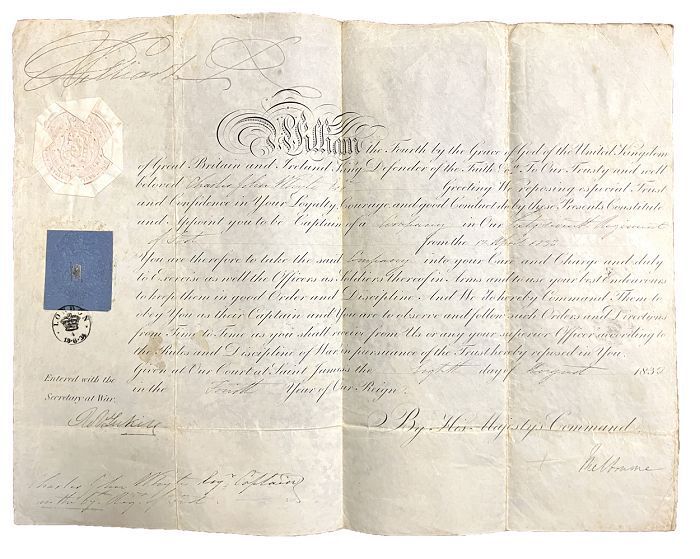 William R
William the Fourth by the Grace of God of the United Kingdom
of Great Britain and Ireland King Defender of the Faith &c. To Our Trusty and well
beloved Charles John Whyte Greeting We reposing especial Trust
and Confidence in Your Loyalty, Courage and good Conduct do by these Presents Constitute
and Appoint you to be Captain of a Company in Our Regiment
of Foot from the April 1833
You are therefore to take the said Company into your Care and Charge and duly
to Exercise as well the Officers as Soldiers thereof in Arms and to use your best Endeavours
to keep them in good Order and Discipline. And We do hereby Command Them to
obey You as their Captain and You are to observe and follow such Orders and Directions
from Time to Time as you shall receive from Us or any your superior Officer according to
the Rules and Discipline of War in pursuance of the Trust hereby reposed in You.
Given at Our Court at Saint James's the Eighth day of August 1833
in the Fourth Year of Our Reign.
LONDON
Entered with the
Secretary at War.
By His Majesty's Command
Melbourne
Charles John Whyte Esqr. Captain
in the Regt. of Foot